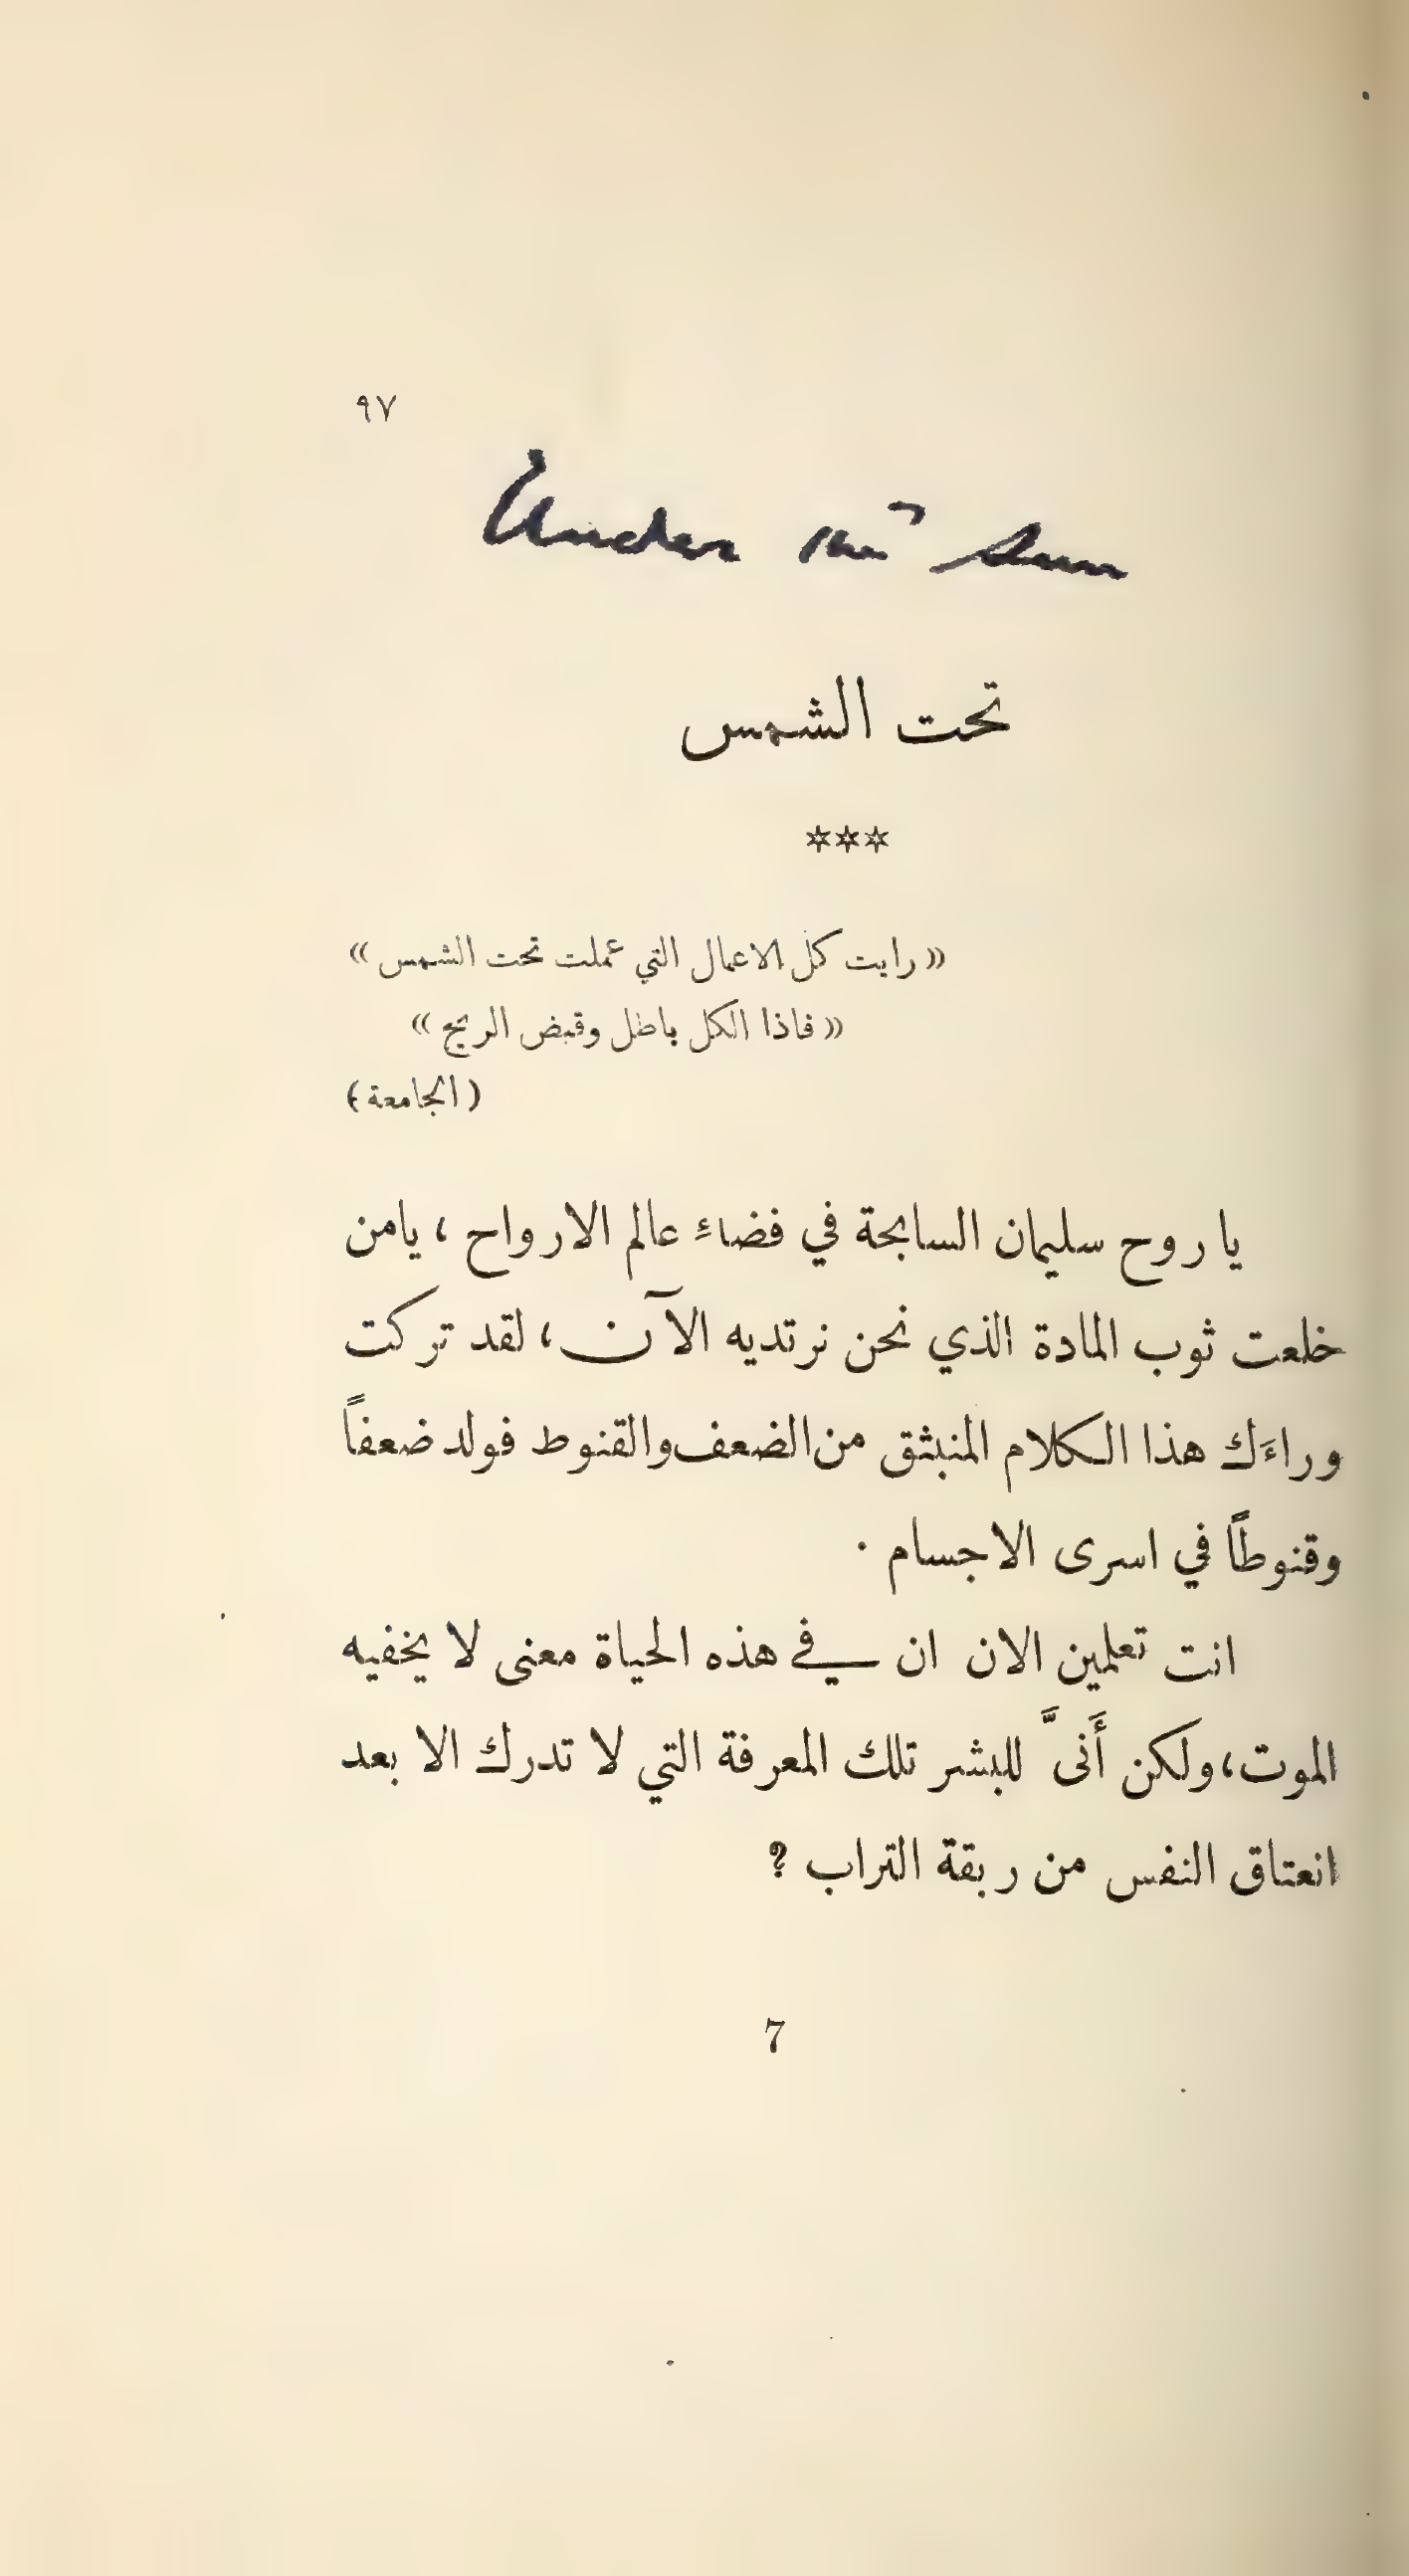 ٩٧
Under the Sun
تحت الشمس
***
« رايت كل الاعمال التي عملت تحت الشمس »
« فاذا الكل باطل وقبض الريح »
( الجامعة )
يا روح سليمان السابحة في فضاءِ عالم الارواح ، يامن
خلعت ثوب المادة الذي نحن نرتديه الآن ، لقد تركت
وراءَك هذا الكلام المنبثق من الضعف والقنوط فولد ضعفاً
وقنوطاً في اسرى الاجسام .
انت تعلمين الان ان في هذه الحياة معنى لا يخفيه
الموت، ولكن أَنىَّ للبشر تلك المعرفة التي لا تدرك الا بعد
انعتاق النفس من ربقة التراب ؟
7